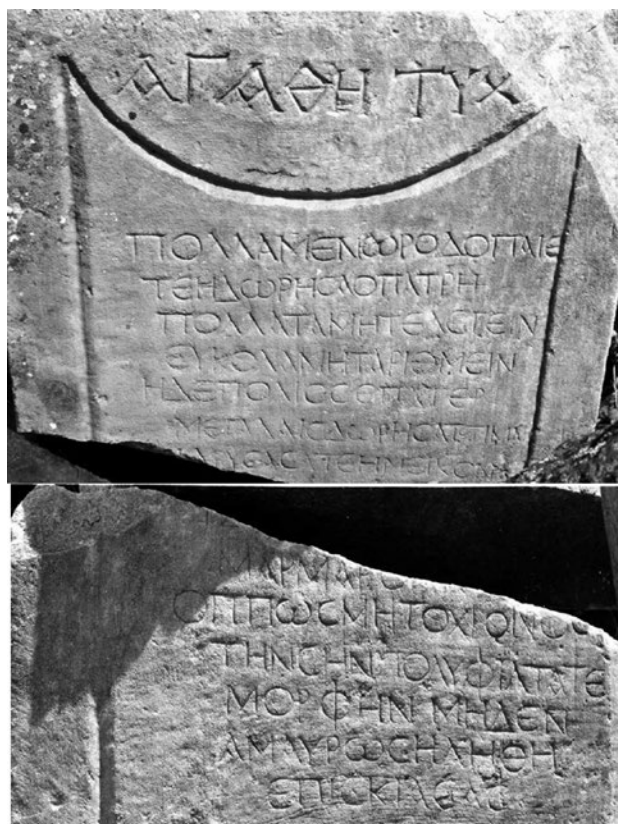 ΑΓΑΘΗ ΤΥΧ
ΠΟΛΛΑΜΕΝΩΡΟΔΟΠΑΙΕ
ΤΕΗΔΩΡΗСΑΟΠΑΤΡΗ
ΠΟΛΛΑΤΑΚΗΤΕΛСΤΕΙΝ
ΕΥΚΟΛΑΝΗΤΑΡΙΘΜΕΙΝ
ΗΔΕΠΟΛΙССΕΠΑΤΕΡ
ΜΕΓΑΛΑΙСΔΩΡΗСΑΤΕΤΙΜΑ
ΟΠΠΩСΜΗΤΟΧΡΟΝΟС
ΤΗΝСΗΝΠΟΛΥΦΙΛΤΑΤΕ
ΜΟΡΦΗΝ ΜΗΔΕΝ
ΑΜΑΥΡΩСΗΛΗΘΗ
ΕΠΕСΚΙΑСΑС